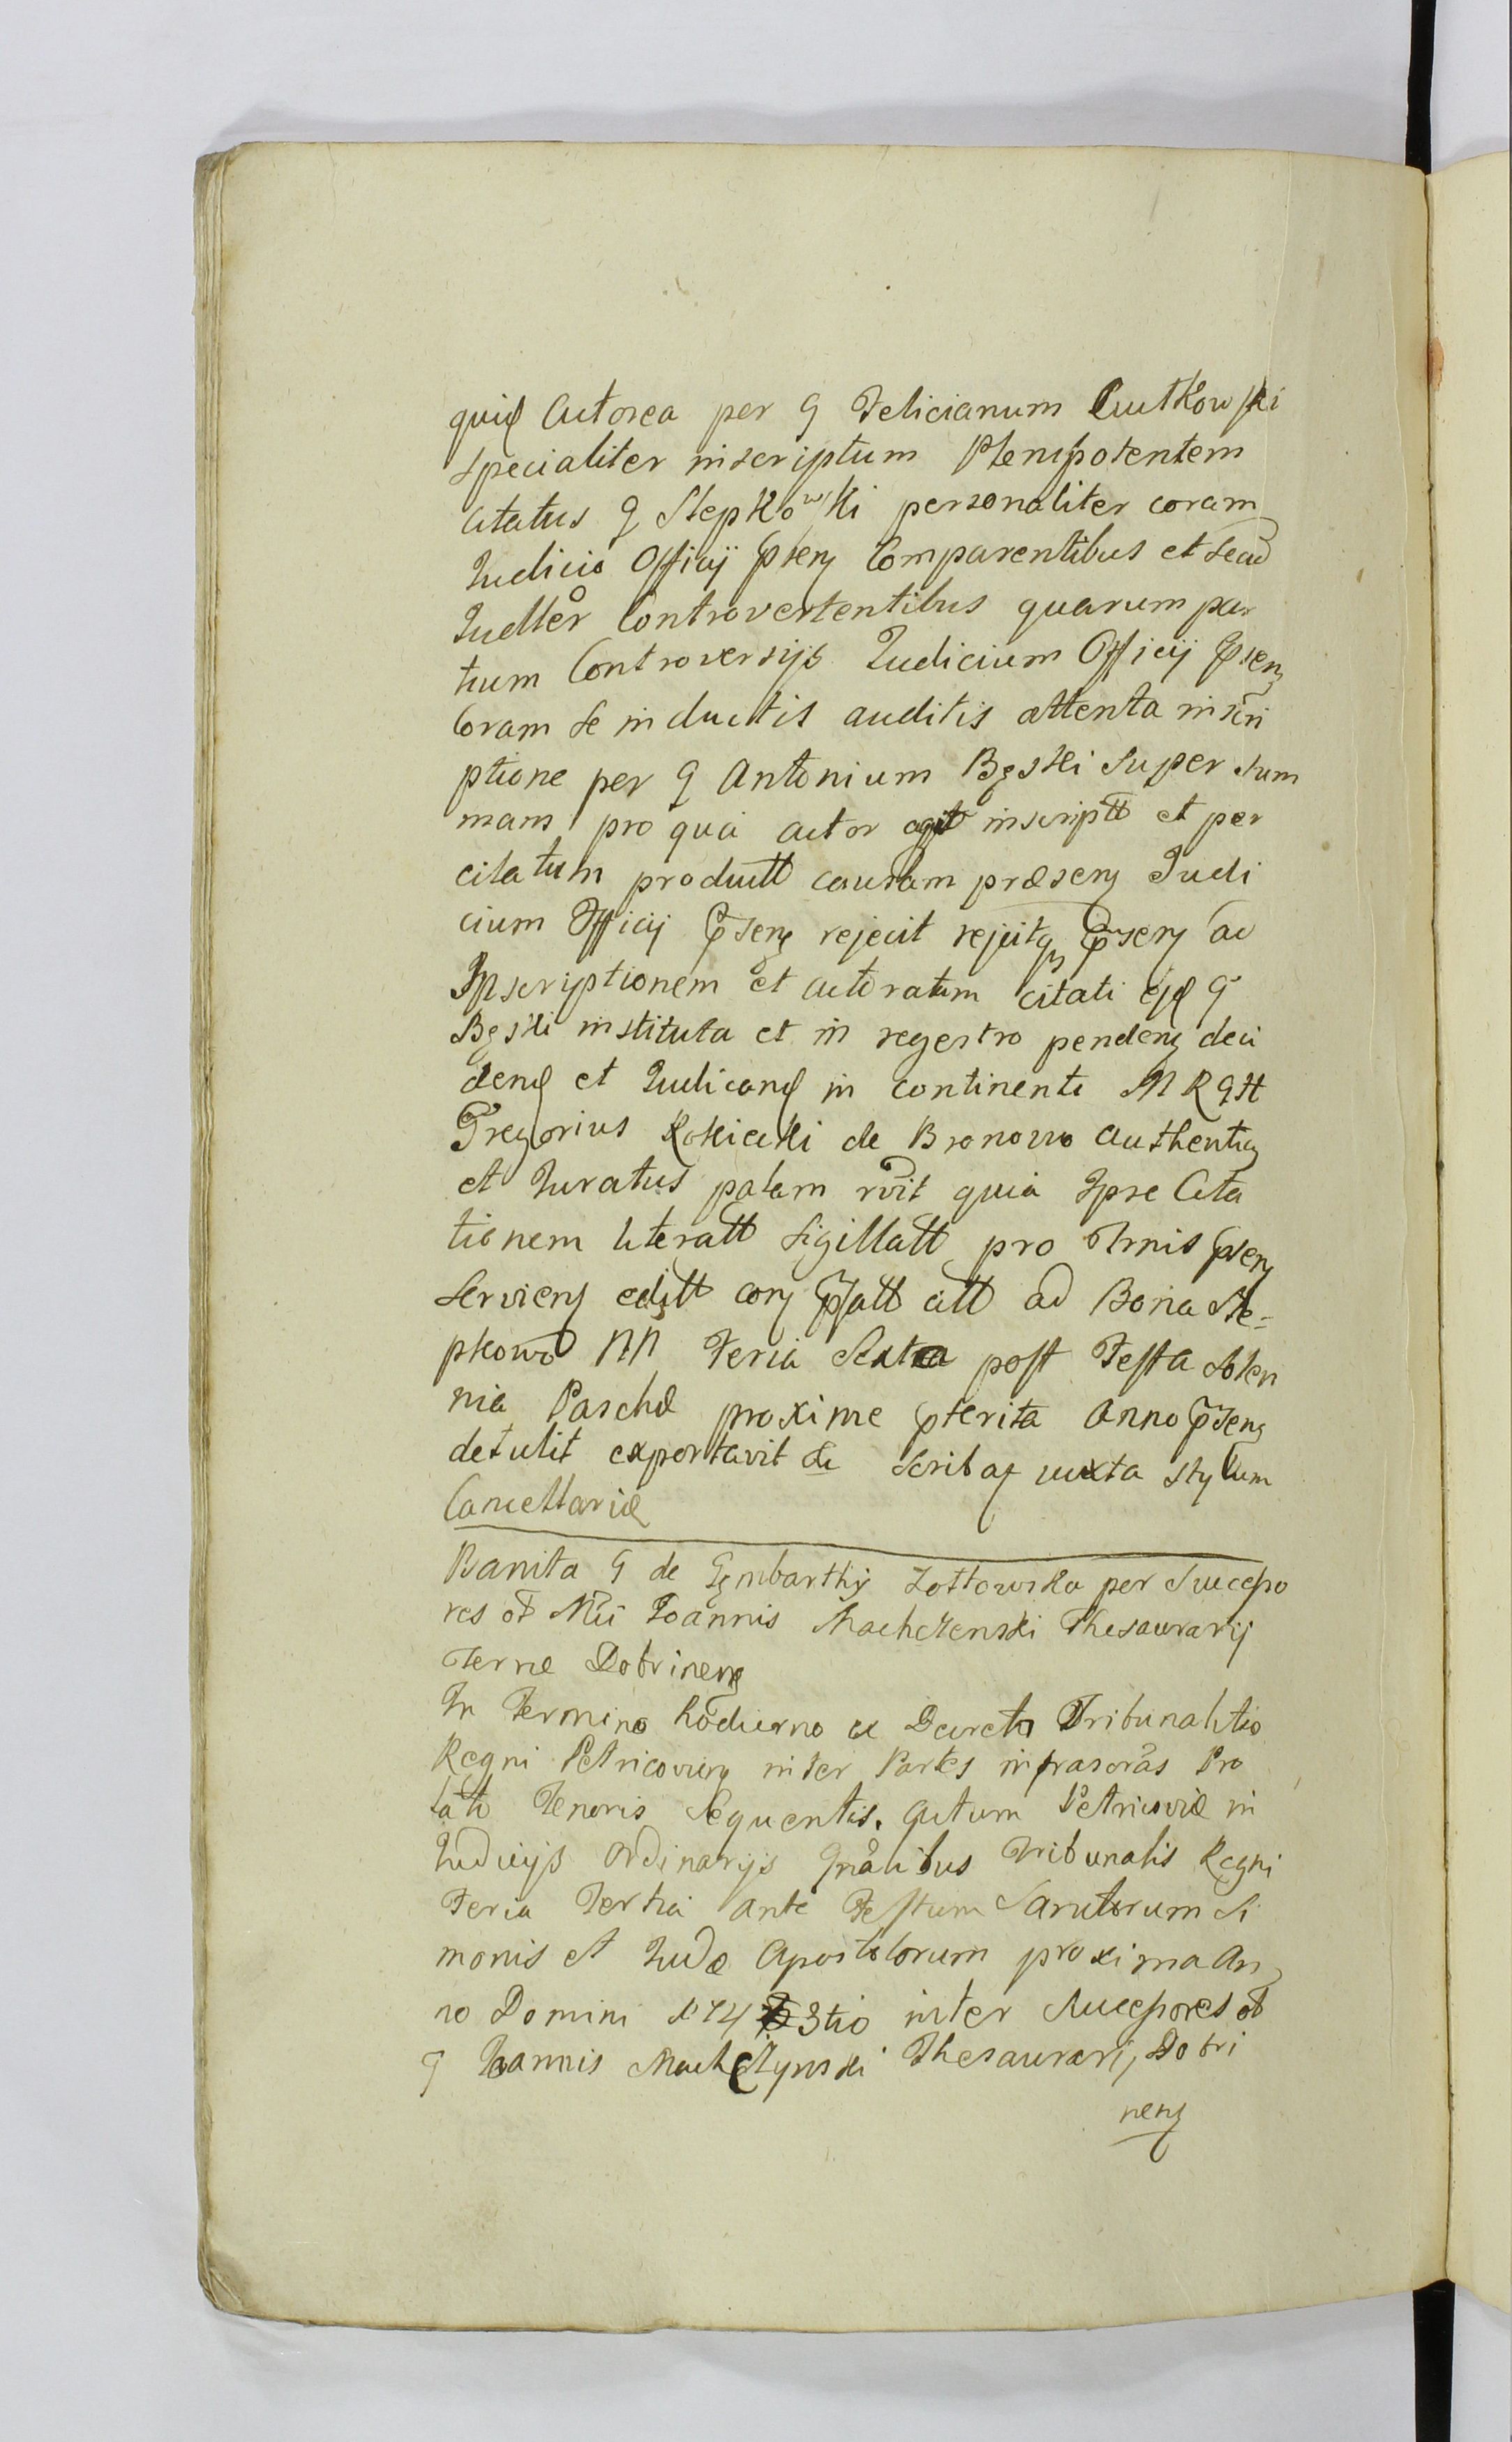 quid Actorea per G Felicianum Cutkowski
specialiter inscriptum Plenipotentem
citatus G Stepkowski personaliter coram
Iudicio Officij pseng Comparentibus et secum
Iudltēr Controvertentibus quarum par
tium Controversijs Iudicium Officij pseng
Coram se inductis auditis attenta inscri
ptione per G Antonium Bęski super sum
mam pro qua actor agit inscriptt et per
citatum productt causam præseng Iudi
cium Officij pseng rejecit rejicitqz pseng ad
Inscriptionem et actoratum citati ejd G
Bęski instituta et in regestro pendeng deci
dend et Iudicand in continenti M R G H
Gregorius Rokicki de Bronowo authenticg
et Iuratus palam rvit quia Ipse Cita
tionem literatt Sigillatt pro Trnis pseng
Servieng editt corg psatt citt ad Bona Ste=
pkowo NN Feria Sexta post Festa Solen
nia Paschæ proxime pterita Anno pseng
detulit exportavit &c Scribaq iuxta stylum
Cancellariæ
Banita G de Gembarthy Zottowska per Successo
res ol Mci Ioannis Machczenski Thesaurarij
Terræ Dobrineng
In Termino hodierno ex Decreto Tribunalitio
Regni Petricovieng inter Partes infrascras Pro
lato Tenoris Sequentis. Actum Petricoviæ in
Iudicijs Ordinarijs Gnālibus Tribunalis Regni
Feria Tertia ante Festum Sanctorum Si
monis et Iudæ Apostolorum proxima An
no Domini 1743tio inter Successores ol
G Ioannis Machczynski Thesaurarij Dobri
neng